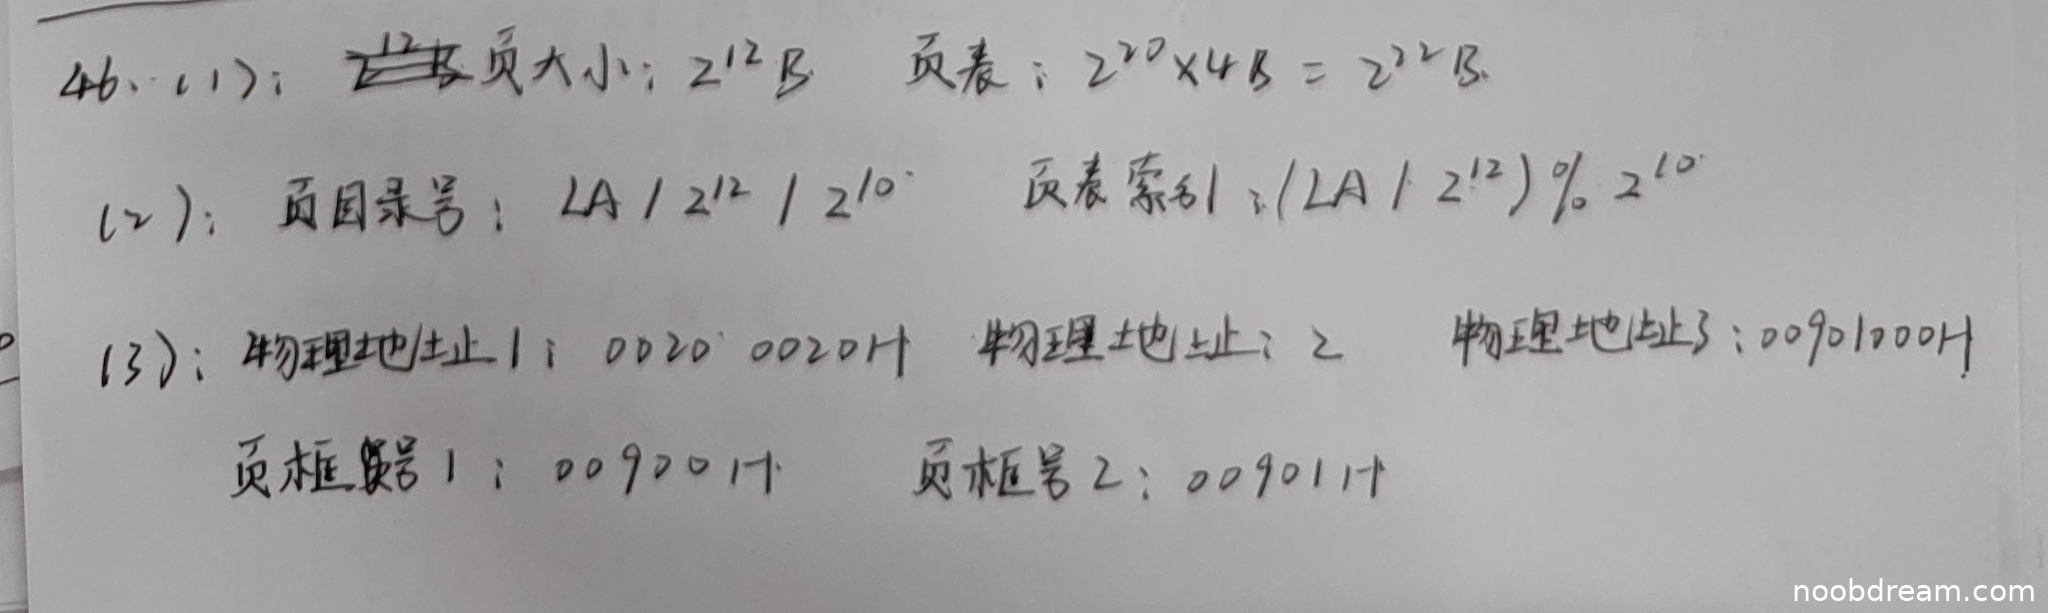 46. (1): 页大小: 2¹²B 页表: 2²⁰×4B = 2²²B.
(2): 页目录号: LA / 2¹² / 2¹⁰ 页表索引: (LA / 2¹²) % 2¹⁰
(3): 物理地址1: 0020 0020H 物理地址: 2 物理地址3: 00901000H
页框号1: 00900H 页框号2: 00901H
noobdream.com